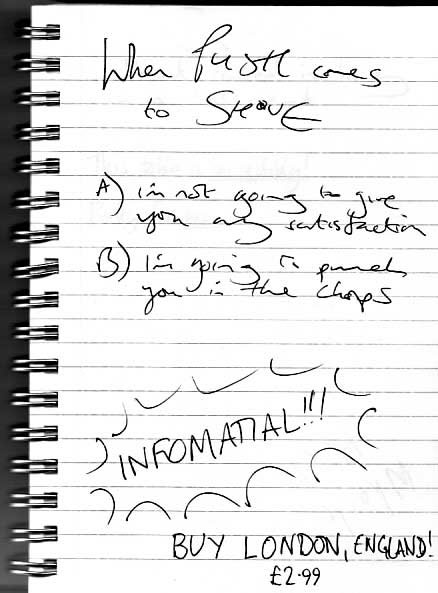 When PUSH comes
to SHOVE
A) i'm not going to give
you any satisfaction
B) I'm going to punch
you in the chops
INFOMATIAL!!!
BUY LONDON, ENGLAND!
£2.99